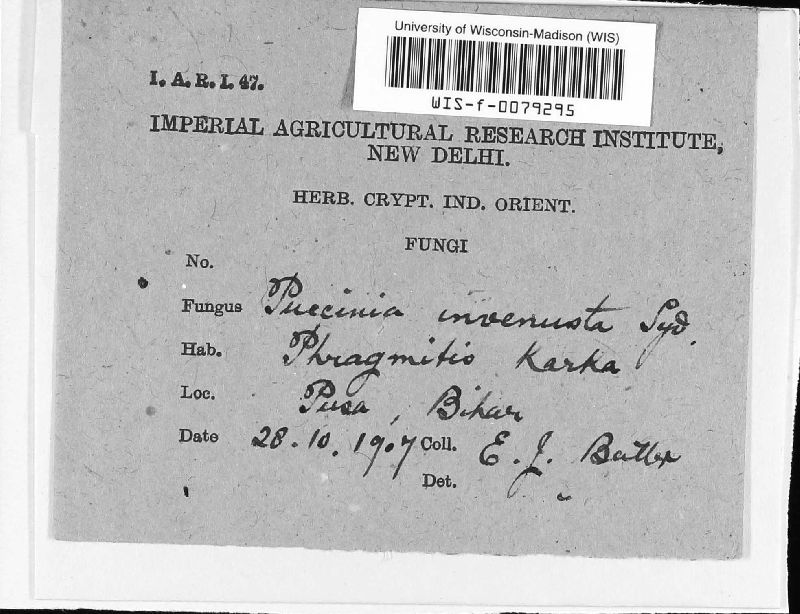 University of Wisconsin-Madison (WIS)
WIS-f-0079295
I. A. R. I. 47.
IMPERIAL AGRICULTURAL RESEARCH INSTITUTE,
NEW DELHI.
HERB. CRYPT. IND. ORIENT.
FUNGI
No.
Fungus Puccinia invenusta Syd.
Hab. Phragmitis Karka
Loc. Pusa, Bihar
Date 28.10.1907 Coll. E. J. Butler
Det.